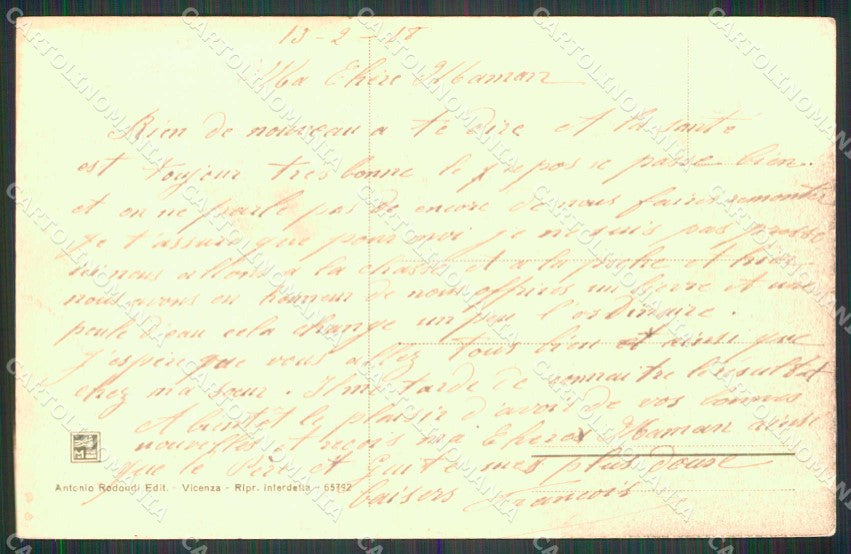 13-2-18
Ma Chère Maman
Rien de nouveau a te dire et la santé
est toujour tres bonne le repos se passe bien.
et on ne parle pas de encore de nous faires remonter
Je t'assure que pour moi je ne suis pas pressé
nous allons a la chasse et a la peche et hier
nous avons eu honneur de nous offrires un lievre et une
poule d'eau cela change un peu l'ordinaire.
J'espere que vous allez tous bien et ainsi que
chez ma sœur. Il me tarde de connaitre le resultat
A bientôt le plaisir d'avoir de vos bonnes
nouvelles et reçois ma Chere Maman ainsi
que le Pere et mes plus doux
baisers François
Antonio Rodondi Edit. - Vicenza - Ripr. interdetta - 65792
CARTOLINOMANIA